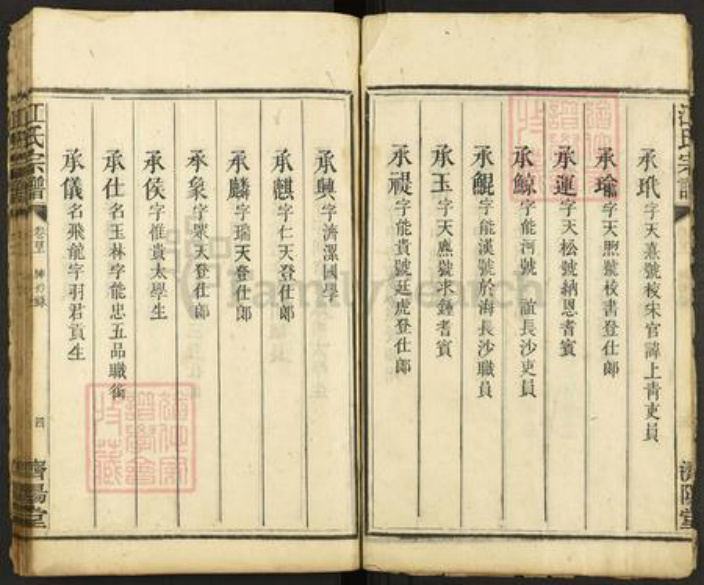 江氏宗譜
濟陽堂
承玳字天熹號梭宋官諱上青吏員
承瑜字天照號校書登仕郎
承運字天松號納恩耆賓
承鯨字能河號 誼長沙吏員
承鯤字能漢號於海長沙職員
承玉字天應號求鐘耆賓
承禔字能貴號廷虎登仕郎
承興字濟潔國學
承麒字仁天登仕郎
承麟字瑞天登仕郎
承象字眾天登仕郎
承侯字惟貴太學生
承仕名玉林字能忠五品職銜
承儀名飛龍字羽君貢生
江氏宗譜
四
濟陽堂
FamilySearch